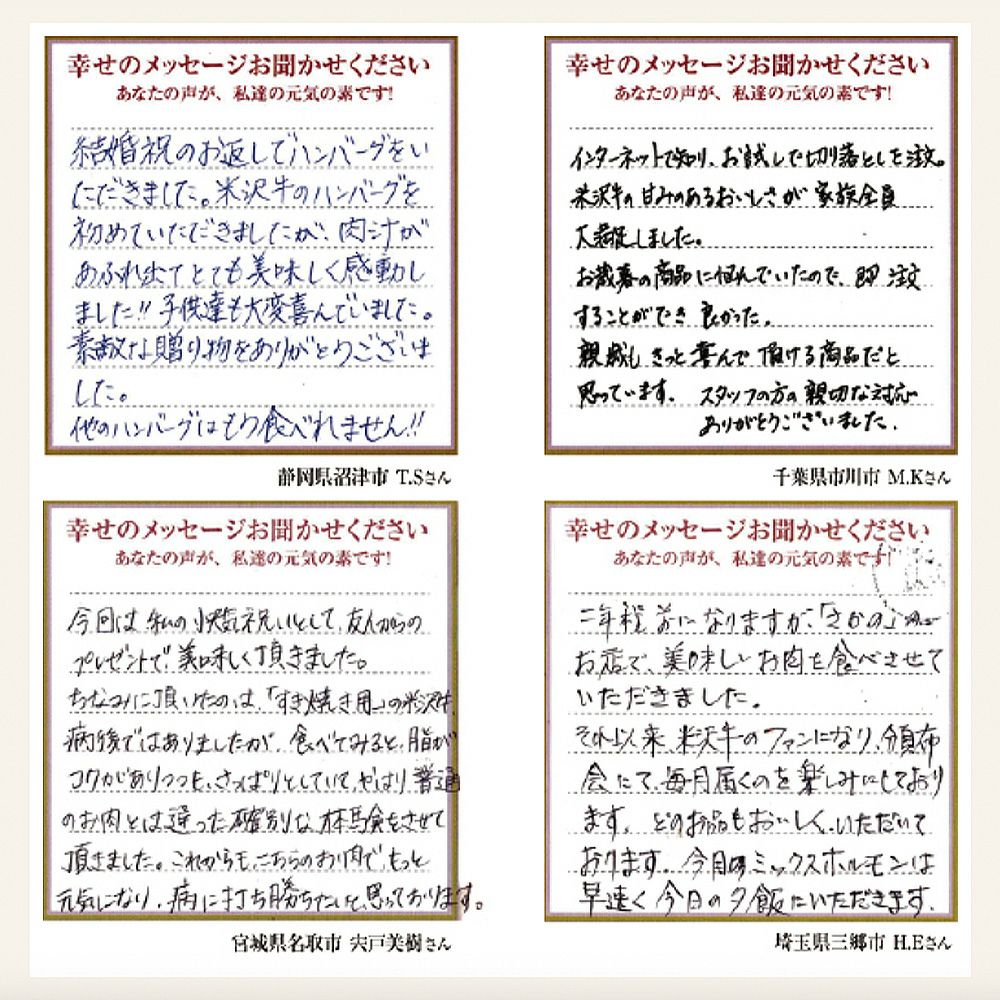 幸せのメッセージお聞かせください
あなたの声が、私達の元気の素です!
結婚祝のお返しでハンバーグをい
ただきました。米沢牛のハンバーグを
初めていただきましたが、肉汁が
あふれ出てとても美味しく感動し
ました!! 子供達も大変喜んでいました。
素敵な贈り物をありがとうございま
した。
他のハンバーグはもう食べれません!!
静岡県沼津市 T.Sさん
幸せのメッセージお聞かせください
あなたの声が、私達の元気の素です!
インターネットで知り、お試しで切り落としを注文。
米沢牛の甘みのあるおいしさが 家族全員
大満足しました。
お歳暮の商品に悩んでいたので、即 注文
することができ 良かった。
親戚も きっと 喜んで 頂ける商品だと
思っています。 スタッフの方の親切な対応
ありがとうございました。
千葉県市川市 M.Kさん
幸せのメッセージお聞かせください
あなたの声が、私達の元気の素です!
今回は 私の 快気祝いとして、友人からの
プレゼントで 美味しく頂きました。
ちなみに頂いたのは、「すき焼き用」の米沢牛、
病後ではありましたが、食べてみると、脂が
コクがありつつも、さっぱりとしていて、やはり 普通
のお肉とは違った格別な をさせて
頂きました。これからも、こちらのお肉で、もっと
元気になり、病に打ち勝ちたいと、思っております。
宮城県名取市 宍戸美樹さん
幸せのメッセージお聞かせください
あなたの声が、私達の元気の素です!
二年程 前になりますが、「さかの」
お店で、美味しい お肉を食べさせて
いただきました。
それ以来、米沢牛のファンになり、頒布
会にて、毎月届くのを楽しみにしており
ます。どのお品もおいしく、いただいて
おります。今月のミックスホルモンは
早速く 今日の夕飯にいただきます。
埼玉県三郷市 H.Eさん